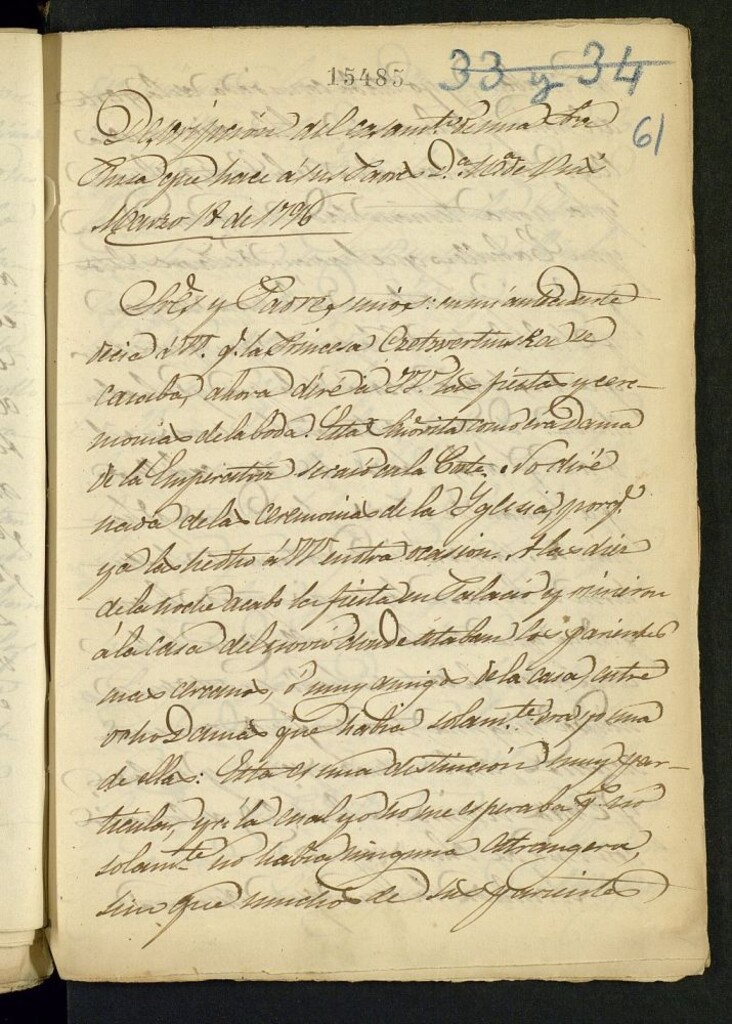 15485
33 y 34
61
Descripción del casamte. de una Sra.
Rusa que hace á sus Padres D.a Ma. de
Marzo 18 de 1796
Sres. y Padres mios: en mi antecedente
decia á VV. q. la Princesa Czetwertinska se
casaba, ahora diré á VV. las fiestas y cere-
monias de la boda. Esta Señorita como era Dama
de la Emperatriz se casó en la Corte. No diré
nada de las ceremonias de la Yglesia, porq.
ya la he dho á VV. en otra ocasion. A las diez
de la noche acabó la fiesta en Palacio y vinieron
á la casa del novio donde estaban los parientes
mas cercanos, ó muy amigos de la casa, entre
ocho Damas que habia solamte. era yo una
de ellas: Esta es una distincion muy par-
ticular, y á la cual yo no me esperaba pr. q. no
solamte. no habia ninguna estrangera,
sino que muchos de sus parientes